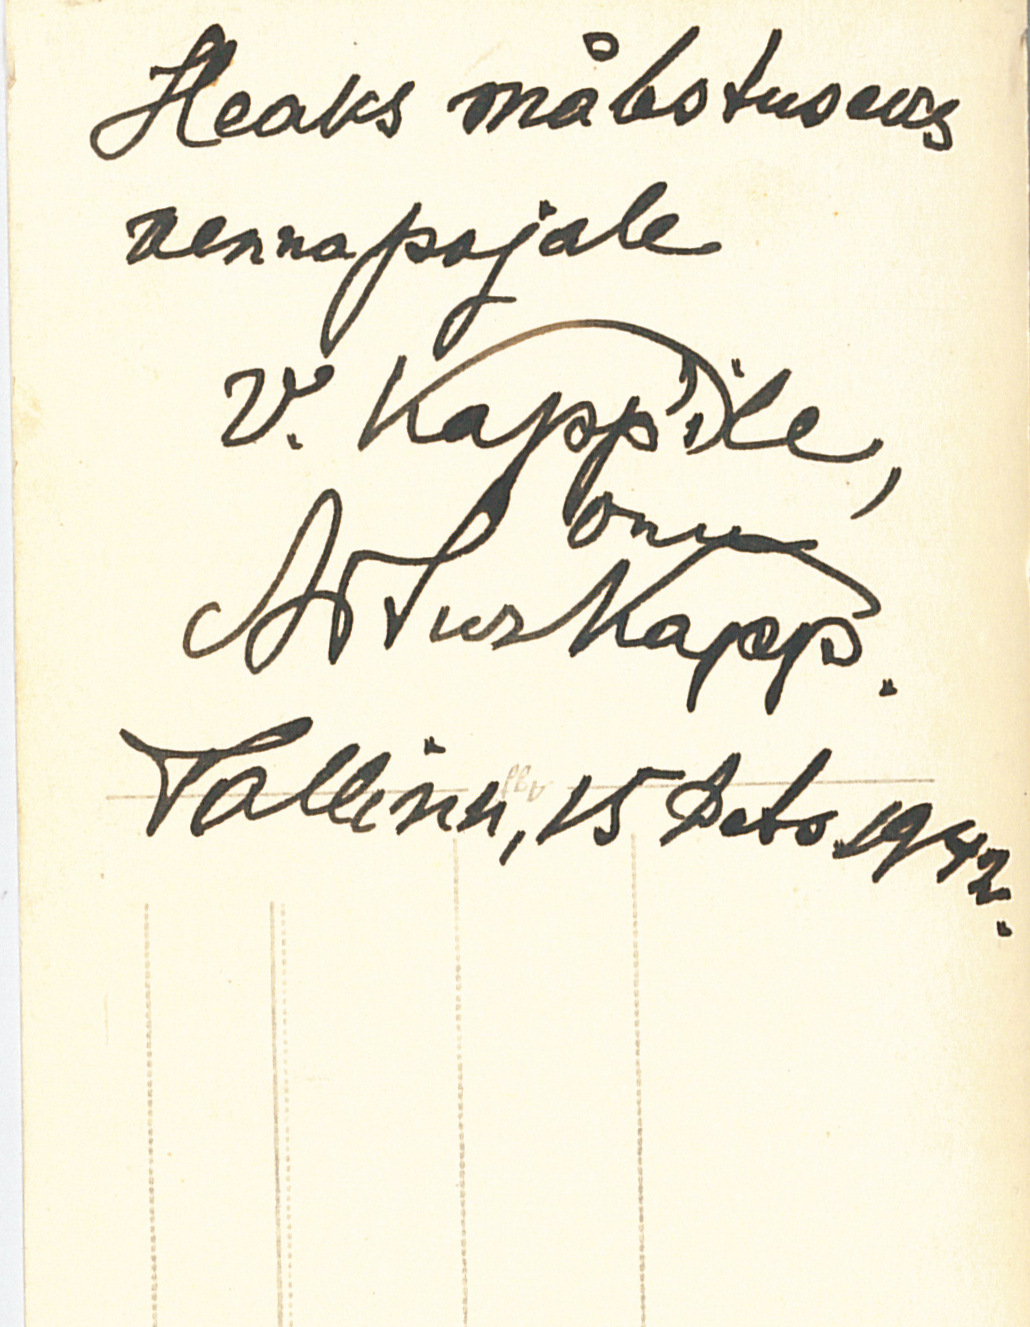 Heaks mälestuseks
vennapojale
V. Kapp'ile,
onu
Artur Kapp.
Tallinn, 15 1942.